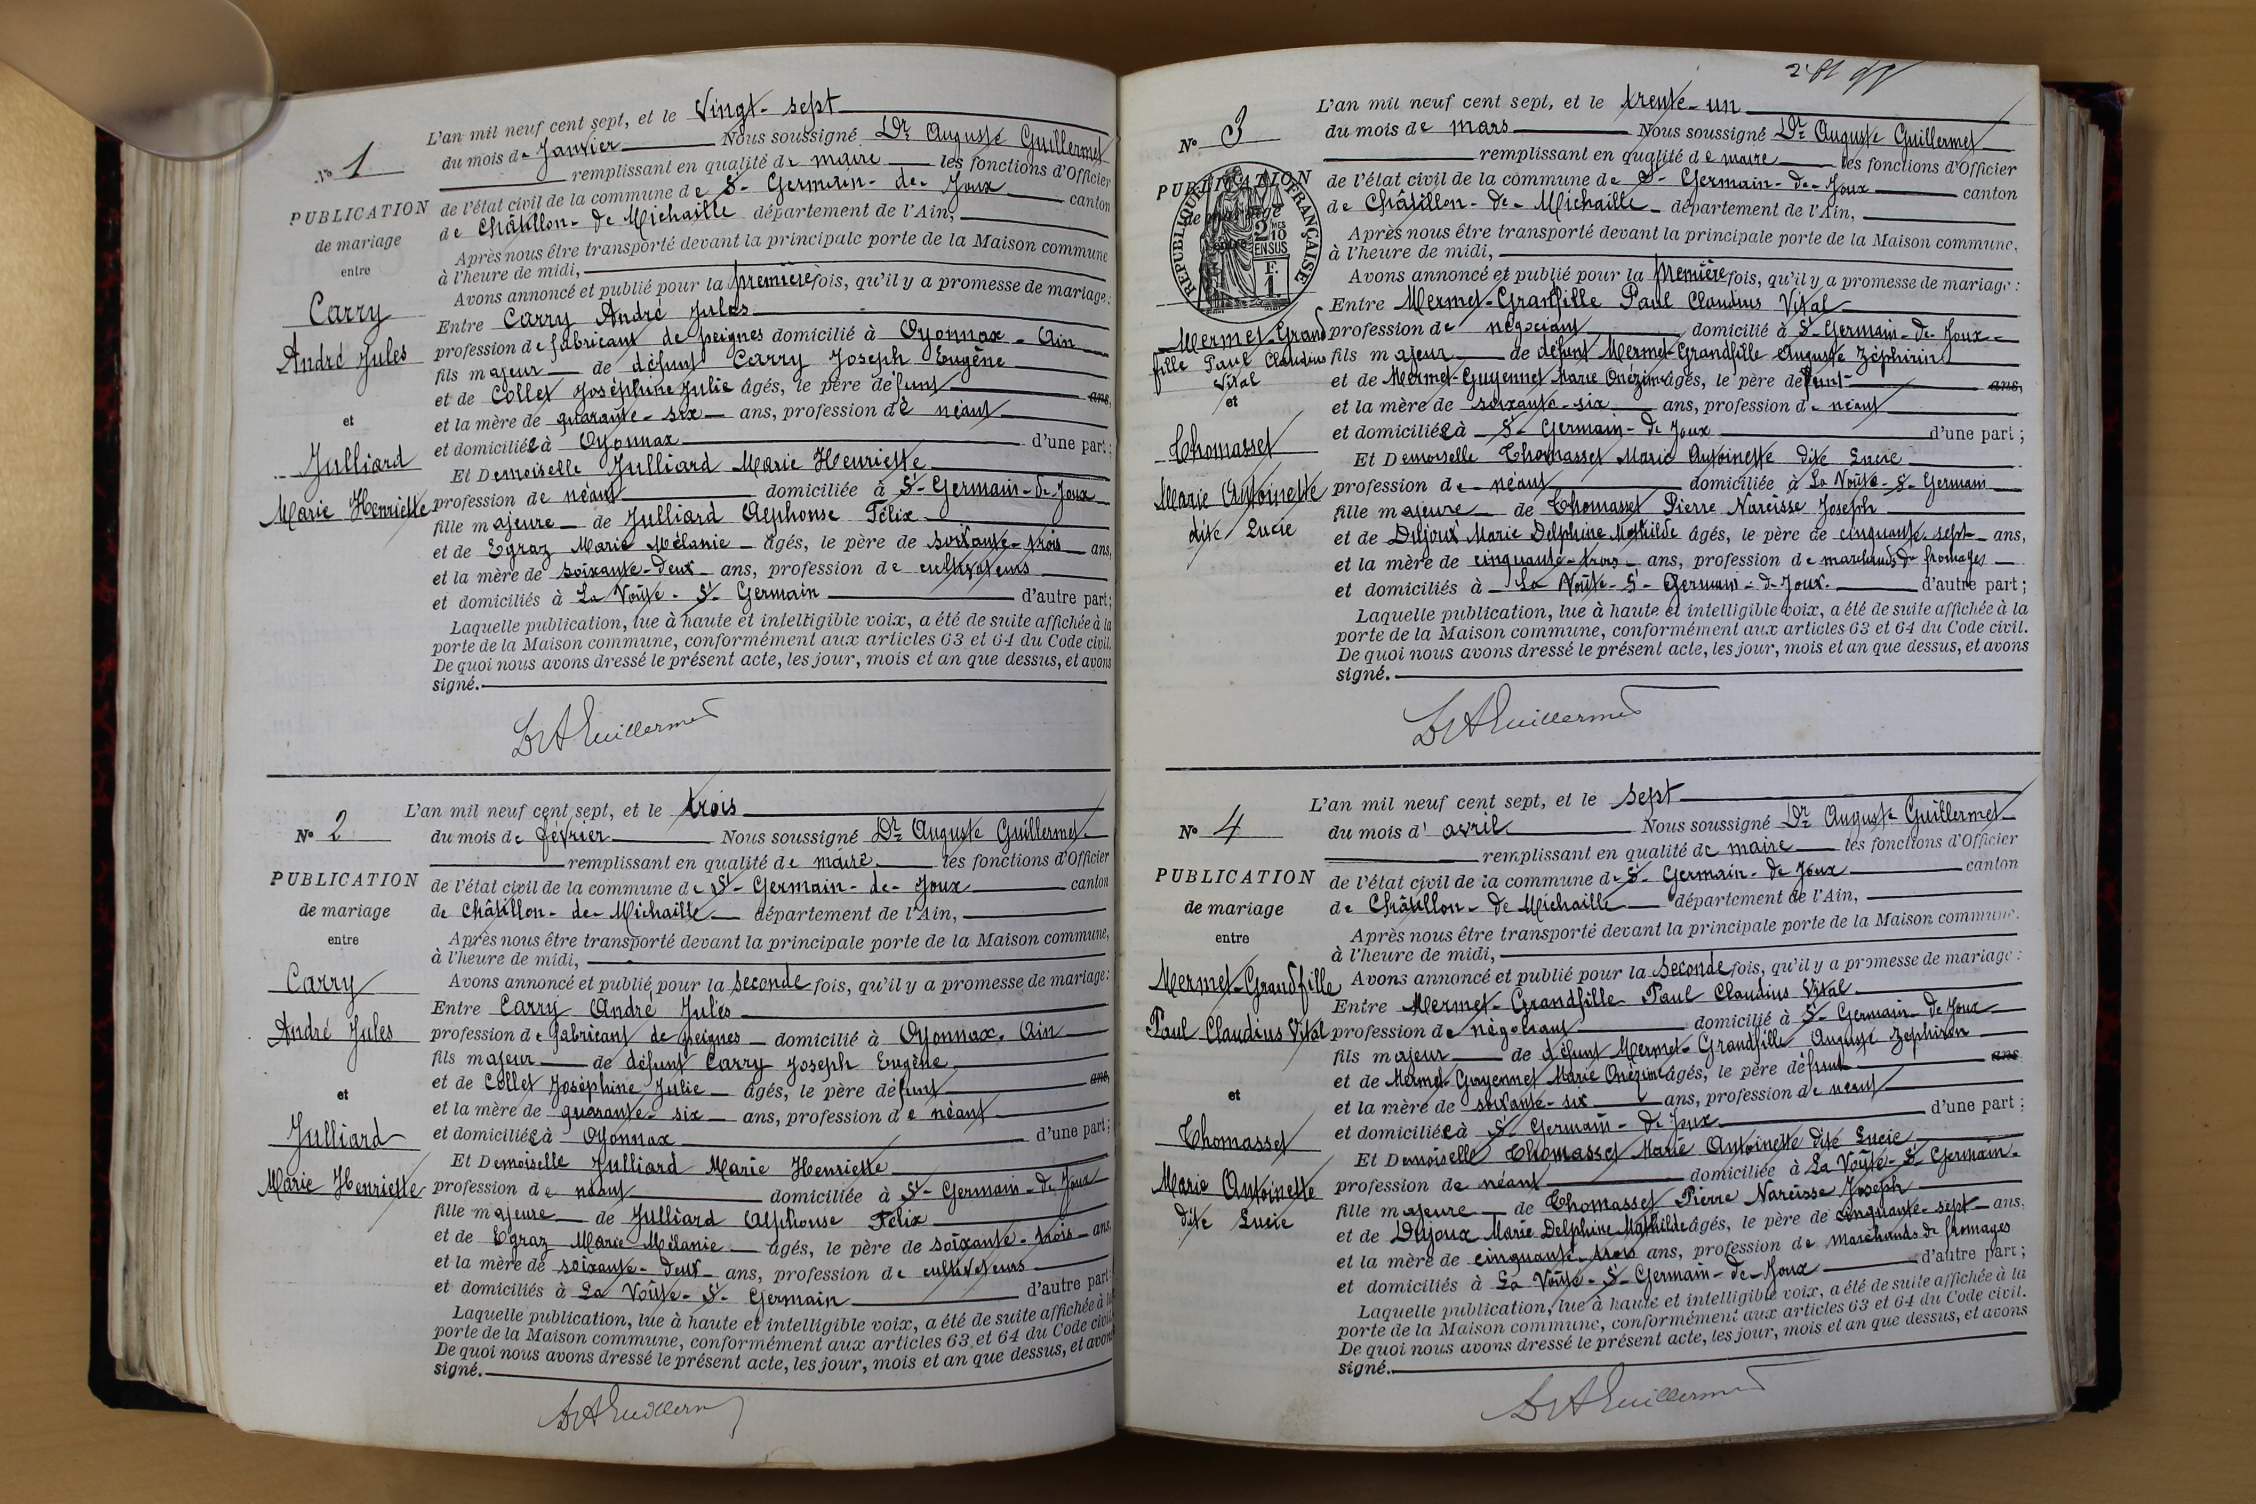 L'an mil neuf cent sept, et le Vingt-sept
du mois de Janvier Nous soussigné Dr Auguste Guillermet
Nº 1
remplissant en qualité de maire les fonctions d'Officier
PUBLICATION
de mariage
entre
Carry
André Jules
et
Julliard
Marie Henriette
de l'état civil de la commune de St-Germain-de-Joux canton
de Châtillon-de Michaille département de l'Ain,
Après nous être transporté devant la principale porte de la Maison commune
à l'heure de midi,
Avons annoncé et publié pour la première fois, qu'il y a promesse de mariage:
Entre Carry André Jules
profession de fabricant de peignes domicilié à Oyonnax - Ain
fils majeur de défunt Carry Joseph Eugène
et de Collet Joséphine Julie âgés, le père défunt ans,
et la mère de quarante-six ans, profession de néant
et domiciliée à Oyonnax d'une part;
Et Demoiselle Julliard Marie Henriette
profession de néant domiciliée à St-Germain-de Joux
fille majeure de Julliard Alphonse Félix
et de Egraz Marie Mélanie âgés, le père de soixante-trois ans,
et la mère de soixante-deux ans, profession de cultivateurs
et domiciliés à La Voûte-St-Germain d'autre part;
Laquelle publication, lue à haute et intelligible voix, a été de suite affichée à la
porte de la Maison commune, conformément aux articles 63 et 64 du Code civil.
De quoi nous avons dressé le présent acte, les jour, mois et an que dessus, et avons
signé.
Dr A Guillermet
L'an mil neuf cent sept, et le trois
Nº 2
du mois de février Nous soussigné Dr Auguste Guillermet
remplissant en qualité de maire les fonctions d'Officier
PUBLICATION
de mariage
entre
Carry
André Jules
et
Julliard
Marie Henriette
de l'état civil de la commune de St-Germain-de-Joux canton
de Châtillon-de-Michaille département de l'Ain,
Après nous être transporté devant la principale porte de la Maison commune,
à l'heure de midi,
Avons annoncé et publié pour la seconde fois, qu'il y a promesse de mariage:
Entre Carry André Jules
profession de fabricant de peignes domicilié à Oyonnax. Ain
fils majeur de défunt Carry Joseph Eugène
et de Collet Joséphine Julie âgés, le père défunt ans,
et la mère de quarante-six ans, profession de néant
et domiciliée à Oyonnax d'une part;
Et Demoiselle Julliard Marie Henriette
profession de néant domiciliée à St-Germain-de Joux
fille majeure de Julliard Alphonse Félix
et de Egraz Marie Mélanie âgés, le père de soixante-trois ans,
et la mère de soixante-deux ans, profession de cultivateurs
et domiciliés à La Voûte-St-Germain d'autre part;
Laquelle publication, lue à haute et intelligible voix, a été de suite affichée à la
porte de la Maison commune, conformément aux articles 63 et 64 du Code civil
De quoi nous avons dressé le présent acte, les jour, mois et an que dessus, et avons
signé.
Dr A Guillerm
L'an mil neuf cent sept, et le trente-un
Nº 3
du mois de mars Nous soussigné Dr Auguste Guillermet
remplissant en qualité de maire les fonctions d'Officier
PUBLICATION
de mariage
entre
RÉPUBLIQUE FRANÇAISE
2 MES
10
EN SUS
F.
1.
Mermet-Grand
fille Paul Claudius
Vital
et
Thomasset
Marie Antoinette
dite Lucie
de l'état civil de la commune de St-Germain-de-Joux canton
de Châtillon-de-Michaille département de l'Ain,
Après nous être transporté devant la principale porte de la Maison commune,
à l'heure de midi,
Avons annoncé et publié pour la première fois, qu'il y a promesse de mariage:
Entre Mermet-Granfille Paul Claudius Vital
profession de négociant domicilié à St-Germain-de-Joux
fils majeur de défunt Mermet-Grandfille Auguste Zéphirin
et de Mermet-Guyennet Marie Onézime âgés, le père défunt ans,
et la mère de soixante-six ans, profession de néant
et domiciliée à St-Germain-de Joux d'une part;
Et Demoiselle Thomasset Marie Antoinette dite Lucie
profession de néant domiciliée à La Voûte-St-Germain
fille majeure de Thomasset Pierre Narcisse Joseph
et de Dujoux Marie Delphine Mathilde âgés, le père de cinquante-sept ans,
et la mère de cinquante-trois ans, profession de marchands de fromages
et domiciliés à La Voûte-St-Germain-de-Joux. d'autre part;
Laquelle publication, lue à haute et intelligible voix, a été de suite affichée à la
porte de la Maison commune, conformément aux articles 63 et 64 du Code civil.
De quoi nous avons dressé le présent acte, les jour, mois et an que dessus, et avons
signé.
Dr A Guillermet
L'an mil neuf cent sept, et le sept
Nº 4
du mois d'avril Nous soussigné Dr Auguste Guillermet
remplissant en qualité de maire les fonctions d'Officier
PUBLICATION
de mariage
entre
Mermet-Grandfille
Paul Claudius Vital
et
Thomasset
Marie Antoinette
dite Lucie
de l'état civil de la commune de St-Germain-de Joux canton
de Châtillon-de Michaille département de l'Ain,
Après nous être transporté devant la principale porte de la Maison commune.
à l'heure de midi,
Avons annoncé et publié pour la seconde fois, qu'il y a promesse de mariage:
Entre Mermet-Grandfille Paul Claudius Vital
profession de négociant domicilié à St-Germain-de Joux
fils majeur de défunt Mermet-Grandfille Auguste Zéphirin
et de Mermet-Guyennet Marie Onézime âgés, le père défunt ans
et la mère de soixante-six ans, profession de néant
et domiciliée à St-Germain-de Joux d'une part;
Et Demoiselle Thomasset Marie Antoinette dite Lucie
profession de néant domiciliée à La Voûte-St-Germain.
fille majeure de Thomasset Pierre Narcisse Joseph
et de Dujoux Marie Delphine Mathilde âgés, le père de cinquante-sept ans,
et la mère de cinquante-trois ans, profession de marchands de fromages
et domiciliés à La Voûte-St-Germain-de-Joux d'autre part;
Laquelle publication, lue à haute et intelligible voix, a été de suite affichée à la
porte de la Maison commune, conformément aux articles 63 et 64 du Code civil.
De quoi nous avons dressé le présent acte, les jour, mois et an que dessus, et avons
signé.
Dr A Guillermet